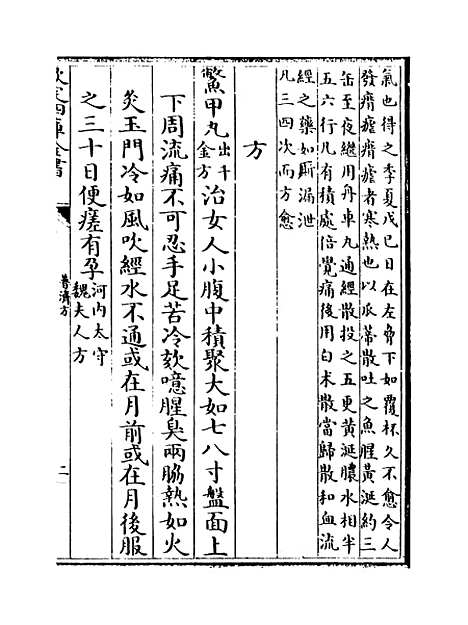 氣也得之季夏戊巳日在左脅下如覆杯久不愈令人
發㾬㾰㾬㾰者寒熱也以瓜蒂散吐之魚腥黃涎約三
缶至夜繼用舟車丸通經散投之五更黃涎膿水相半
五六行凡有積處倍覺痛後用白术散當歸散和血流
經之藥如厮漏泄
凡三四次而方愈
方
鱉甲丸出千金方治女人小腹中積聚大如七八寸盤面上
下周流痛不可忍手足苦冷欬噫腥臭兩脇熱如火
炙玉門冷如風吹經水不通或在月前或在月後服
之三十日便瘥有孕河内太守魏夫人方
欽定四庫全書
普濟方
二